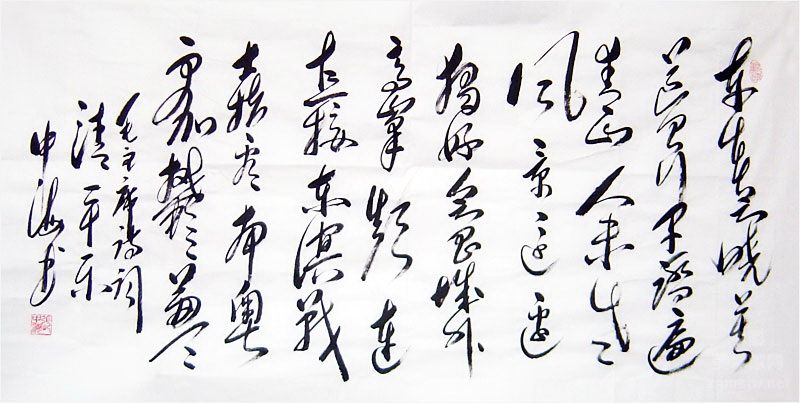 东方欲晓莫
道君行早踏遍
青山人未老
风景这边
独好会昌城外
高峰颠连
直接东溟战
士指看南粤
更加郁郁葱葱
毛主席诗词
清平乐
中海书